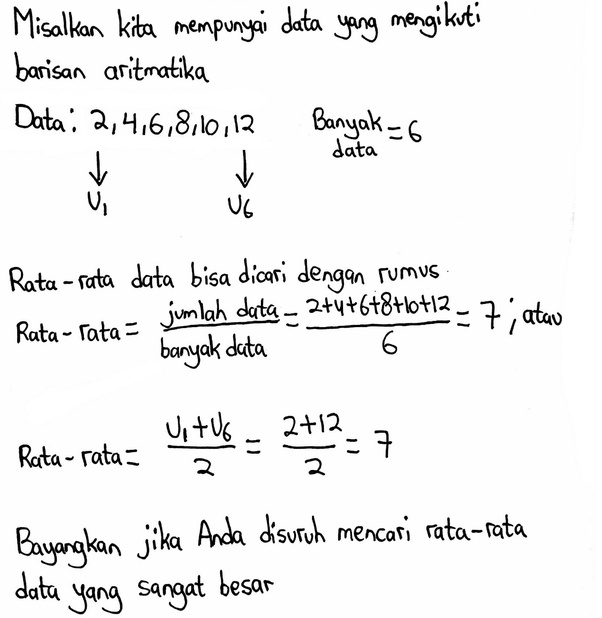 Misalkan kita mempunyai data yang mengikuti
barisan aritmatika
Data: 2,4,6,8,10,12 Banyak data = 6
↓ ↓
U₁ U₆
Rata-rata data bisa dicari dengan rumus.
Rata-rata = jumlah data/banyak data = 2+4+6+8+10+12/6 = 7; atau
Rata-rata = U₁+U₆/2 = 2+12/2 = 7
Bayangkan jika Anda disuruh mencari rata-rata
data yang sangat besar